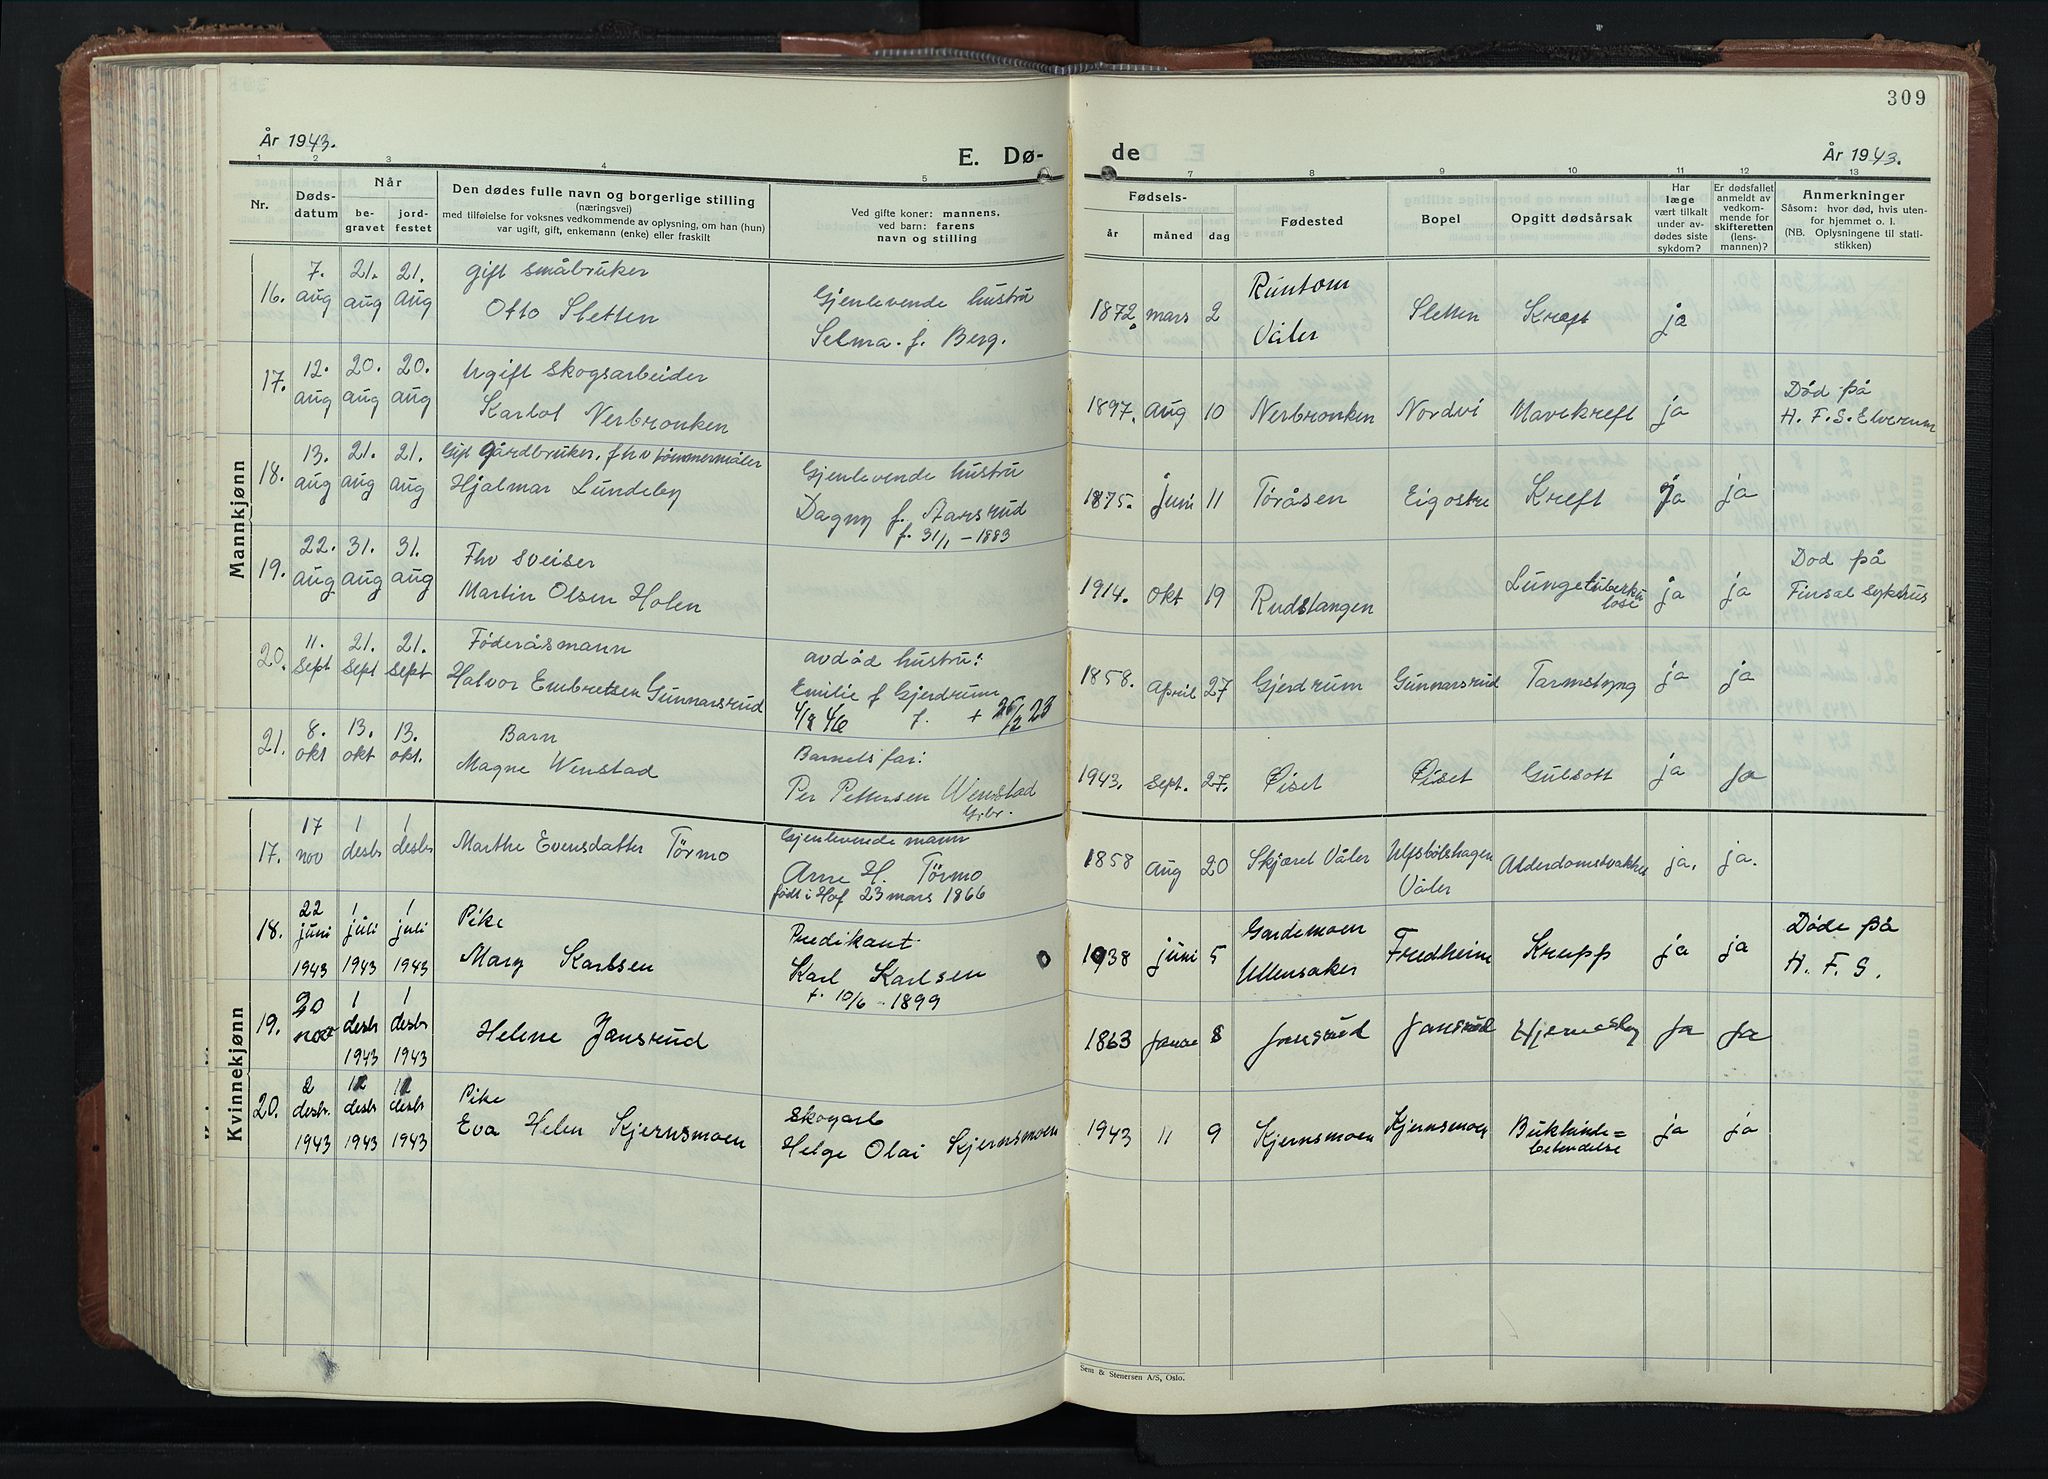 309
År 1943.
E. Dø-
de
År 1943.
1 2 3 4 5 7 8 9 10 11 12 13
Nr.
Døds-
datum
Når
be-
gravet
jord-
festet
Den dødes fulle navn og borgerlige stilling
(næringsvei)
med tilføielse for voksnes vedkommende av oplysning, om han (hun)
var ugift, gift, enkemann (enke) eller fraskilt
Ved gifte koner: mannens,
ved barn: farens
navn og stilling
Fødsels-
år
måned
dag
Fødested
Bopel
Opgitt dødsårsak
Har
læge
vært tilkalt
under av-
dødes siste
sykdom?
Er dødsfallet
anmeldt av
vedkom-
mende for
skifteretten
(lens-
mannen)?
Anmerkninger
Såsom: hvor død, hvis uten-
for hjemmet o. l.
(NB. Oplysningene til stati-
stikken)
Mannkjønn
16. 7. aug 21. aug 21. aug
gift småbruker
Otto Sletten
Gjenlevende hustru
Selma f. Berg.
1872 mars 2
Runtom
Våler
Sletten Kreft ja
17. 12. aug 20. aug 20. aug
Ugift skogsarbeider
Karlot Nerbronken
1897. aug 10 Nerbronken Nordvi Mavekreft ja
Død på
H. F. S. Elverum
18. 13. aug 21. aug 21. aug
Gift gårdbruker, fhv tømmermåler
Hjalmar Lundeby
Gjenlevende hustru
Dagny f. Aarsrud
f. 31/1 – 1883
1875. juni 11 Toråsen Eigostre Kreft ja ja
19. 22. aug 31. aug 31. aug
Fhv sveiser
Martin Olsen Holen
1914. okt 19 Rudstangen
Lungetuberku
lose
ja ja
Død på
Finsal sykehus
20. 11. sept 21. sept 21. sept
Føderåsmann
Halvor Embretsen Gunnarsrud
avdød hustru:
Emilie f Gjerdrum
1858. april 27 Gjerdrum Gunnarsrud Tarmslyng ja ja
21. 8. okt 13. okt 13. okt.
Barn
Magne Wenstad
Barnets far:
Per Pettersen Wenstad
Grbr.
1943. sept. 27. Øiset Øiset Gulsott ja ja
Kvinnekjønn
17. 17 nov 1 desbr 1 desbr
Marthe Evensdatter Tørmo
Gjenlevende mann
Arne H. Tørmo
født i Hof 23 mars 1866
1858 Aug 20 Skjæret Våler
Ulfsbølshagen
Våler
Alderdomsvakhet ja. ja.
18. 22 juni 1943 1 juli 1943 1 juli 1943
Pike
Mary Karlsen
Predikant
Karl Karlsen
f. 10/6 - 1899
1938 juni 5
Gardemoen
Ullensaker
Fredheim Krupp ja ja
Døde på
H. F. S.
19. 20 nov 1 desbr 1943 1 desbr 1943
Helene Jansrud
1863 Janua 8 Jansrud Jansrud Hjerneslag ja ja
20. 2 desbr. 1943 12 desbr 1943 12 desbr 1943
Pike
Eva Helen Kjernsmoen
Skogarb
Helge Olai Kjernsmoen
1943 11 9 Kjernsmoen Kjernsmoen
Bukhinde=
betendelse
ja ja
Sem & Stenersen A/S, Oslo.